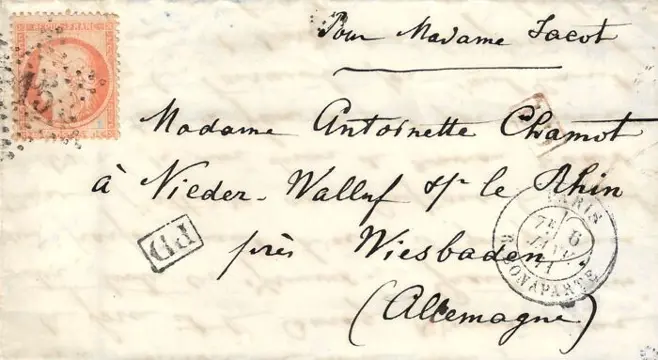 Pour Madame Jacot
Madame Antoinette Chamot
à Nieder-Walluf s/ le Rhin
près Wiesbaden
(Allemagne)
PD
PARIS
7E 6
JANV.
71
R. BONAPARTE
15